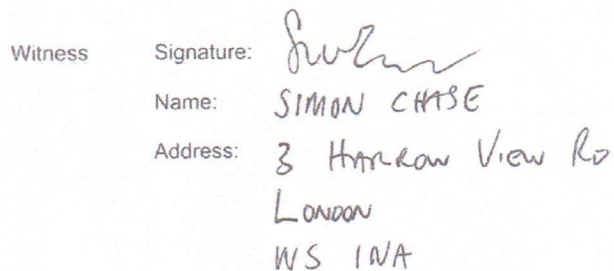 Witness Signature:
Name: SIMON CHASE
Address: 3 HARROW VIEW RD
LONDON
W5 1NA